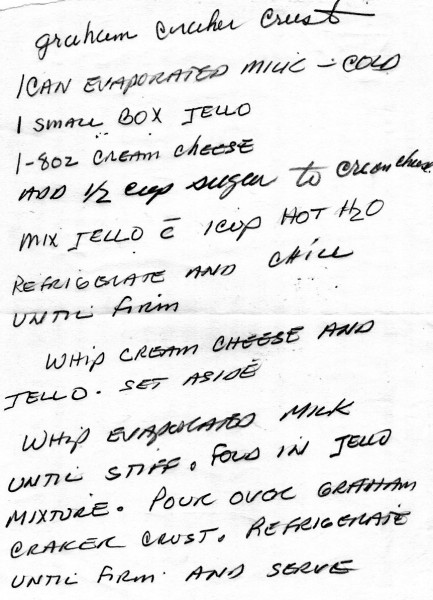 graham cracker crust
1 CAN EVAPORATED MILK - COLD
1 SMALL BOX JELLO
1-8oz CREAM CHEESE
ADD 1/2 cup sugar to cream cheese
MIX JELLO c̄ 1 CUP HOT H2O
REFRIGERATE AND CHILL
UNTIL FIRM
WHIP CREAM CHEESE AND
JELLO. SET ASIDE
WHIP EVAPORATED MILK
UNTIL STIFF. FOLD IN JELLO
MIXTURE. POUR OVER GRAHAM
CRAKER CRUST. REFRIGERATE
UNTIL FIRM AND SERVE